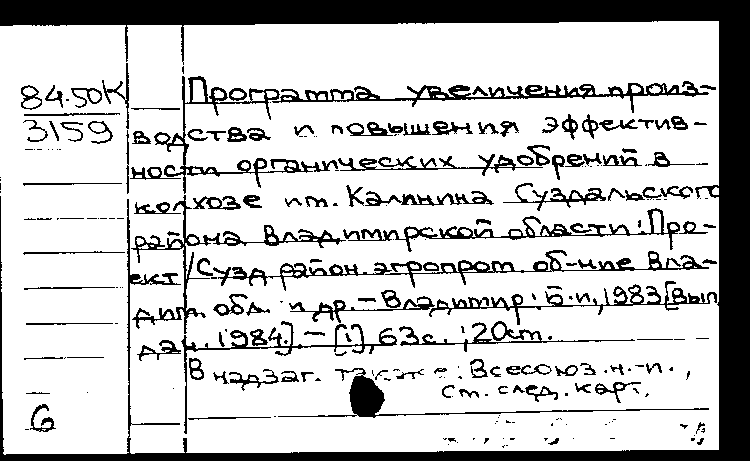 84.50К
3159
Программа увеличения произ-
водства и повышения эффектив-
ности органических удобрений в
колхозе им. Калинина Суздальского
района Владимирской области: Про-
ект / Сузд. район. агропром. об-ние Вла-
дим. обл. и др. – Владимир: Б.и., 1983 [Вып.
дан. 1984]. – [1], 63 с.; 20 см.
В надзаг. также: Всесоюз. н.-и.,
См. след. карт.
6